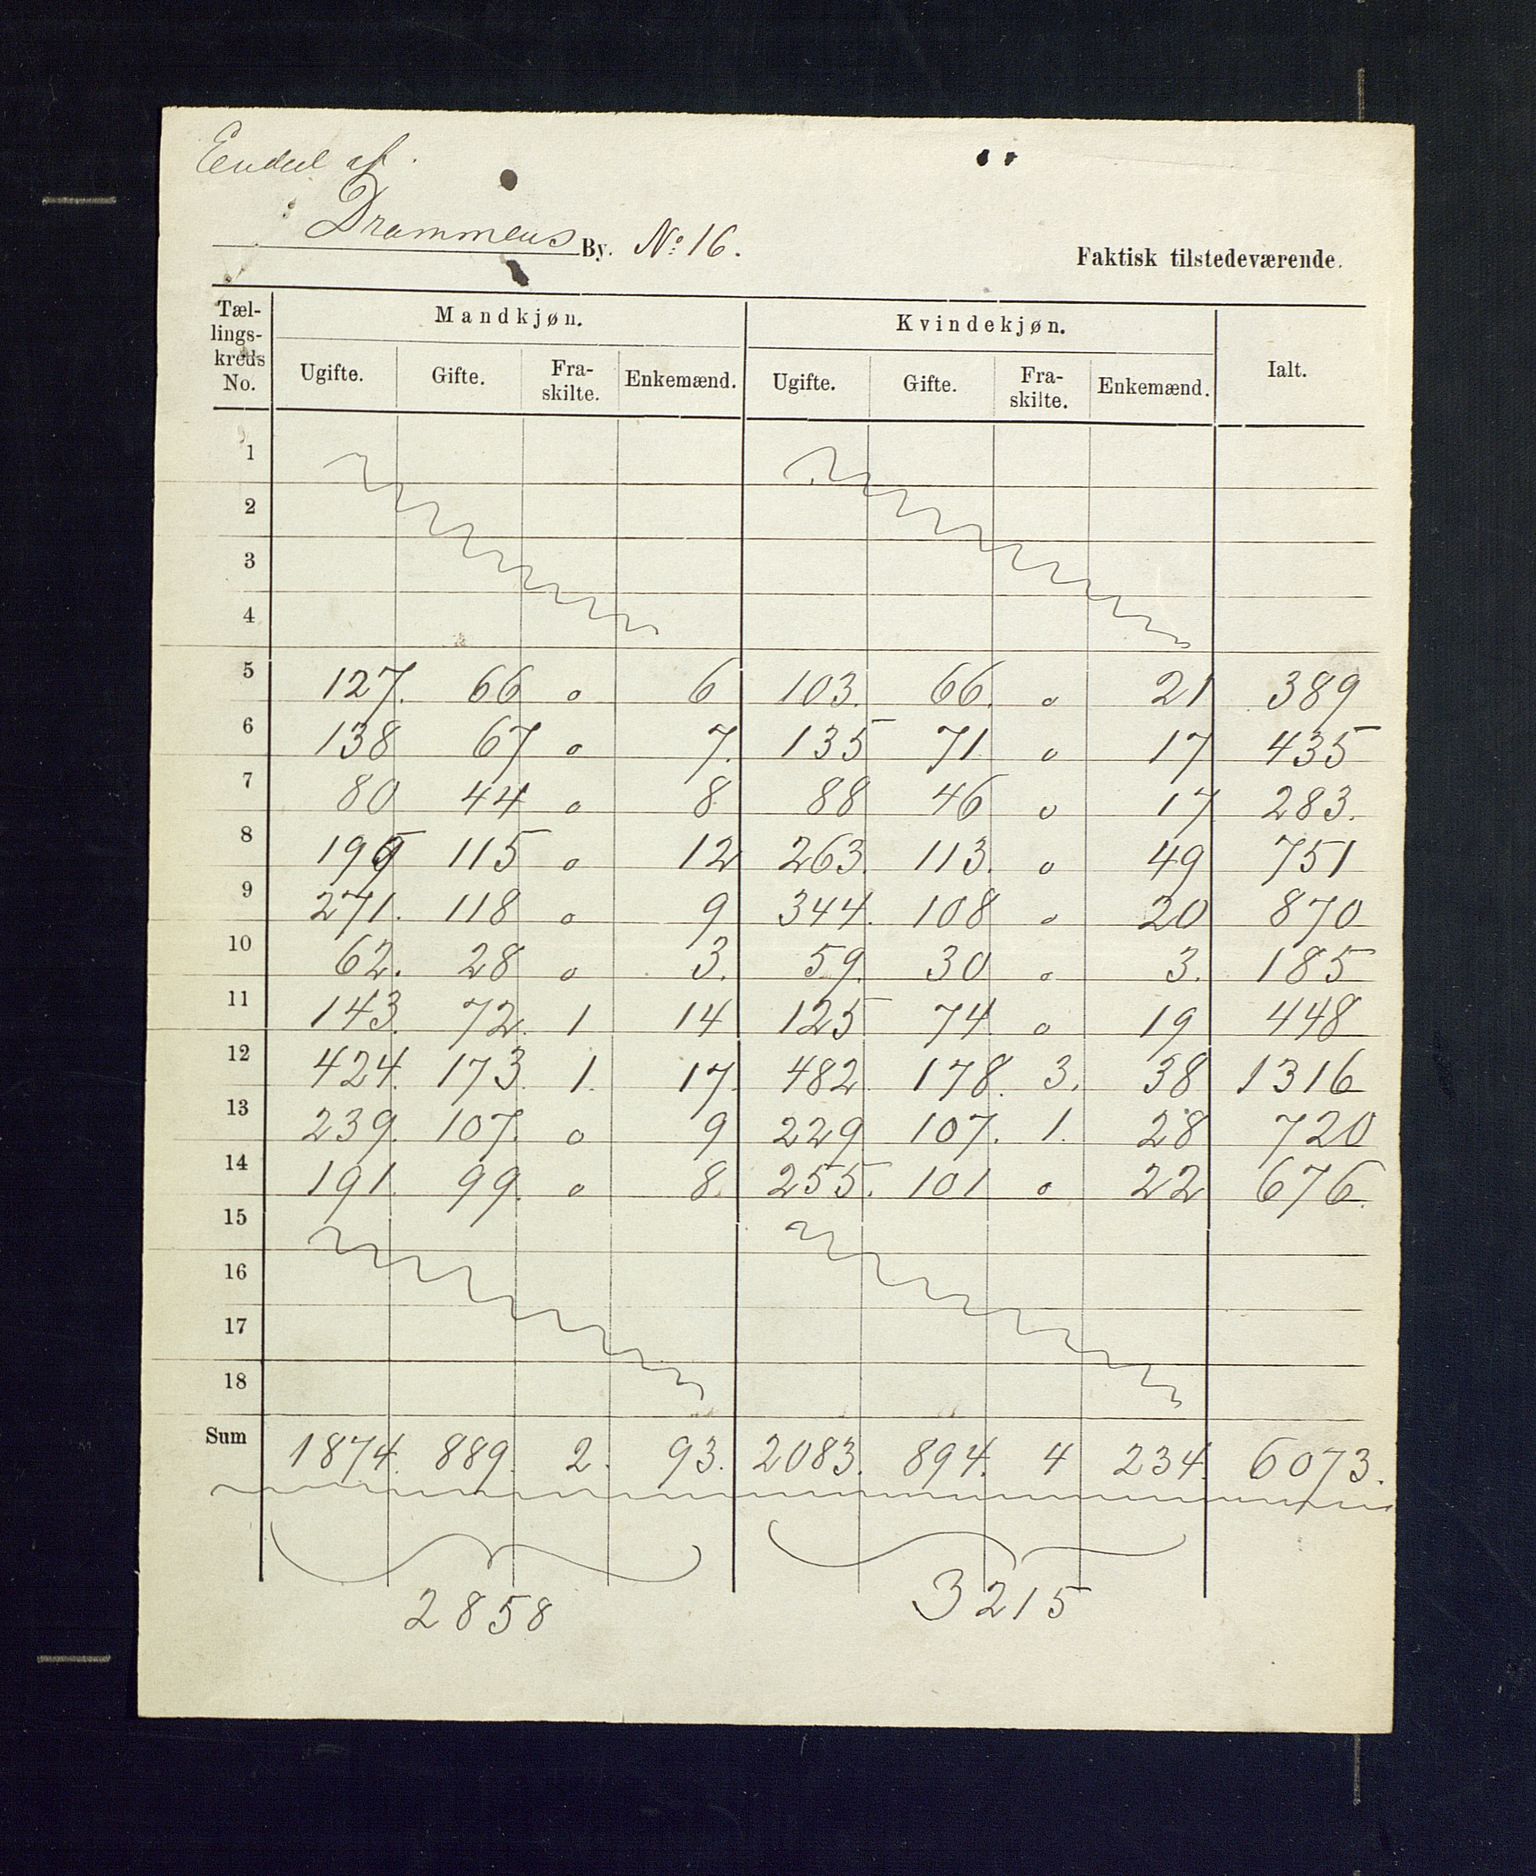 Eendeel af
Drammens By. No: 16.
Faktisk tilstedeværende.
Tællingskreds No. Mandkjøn. Kvindekjøn. Ialt.
Ugifte. Gifte. Fraskilte. Enkemænd. Ugifte. Gifte. Fraskilte. Enkemænd.
1
2
3
4
5 127. 66 0 6 103. 66. 0 21 389
6 138 67 0 7. 135 71 0 17 435
7 80 44 0 8 88 46 0 17 283.
8 199 115 0 12 263. 113. 0 49 751
9 271. 118 0 9 344. 108 0 20 870
10 62. 28 0 3. 59. 30 0 3. 185
11 143. 72. 1 14 125 74 0 19 448
12 424. 173. 1. 17. 482. 178. 3. 38 1316
13 239. 107. 0 9 229 107. 1. 28 720
14 191. 99. 0 8. 255. 101 0 22 676.
15
16
17
18
Sum 1874. 889. 2. 93. 2083. 894. 4 234. 6073.
2858 3215